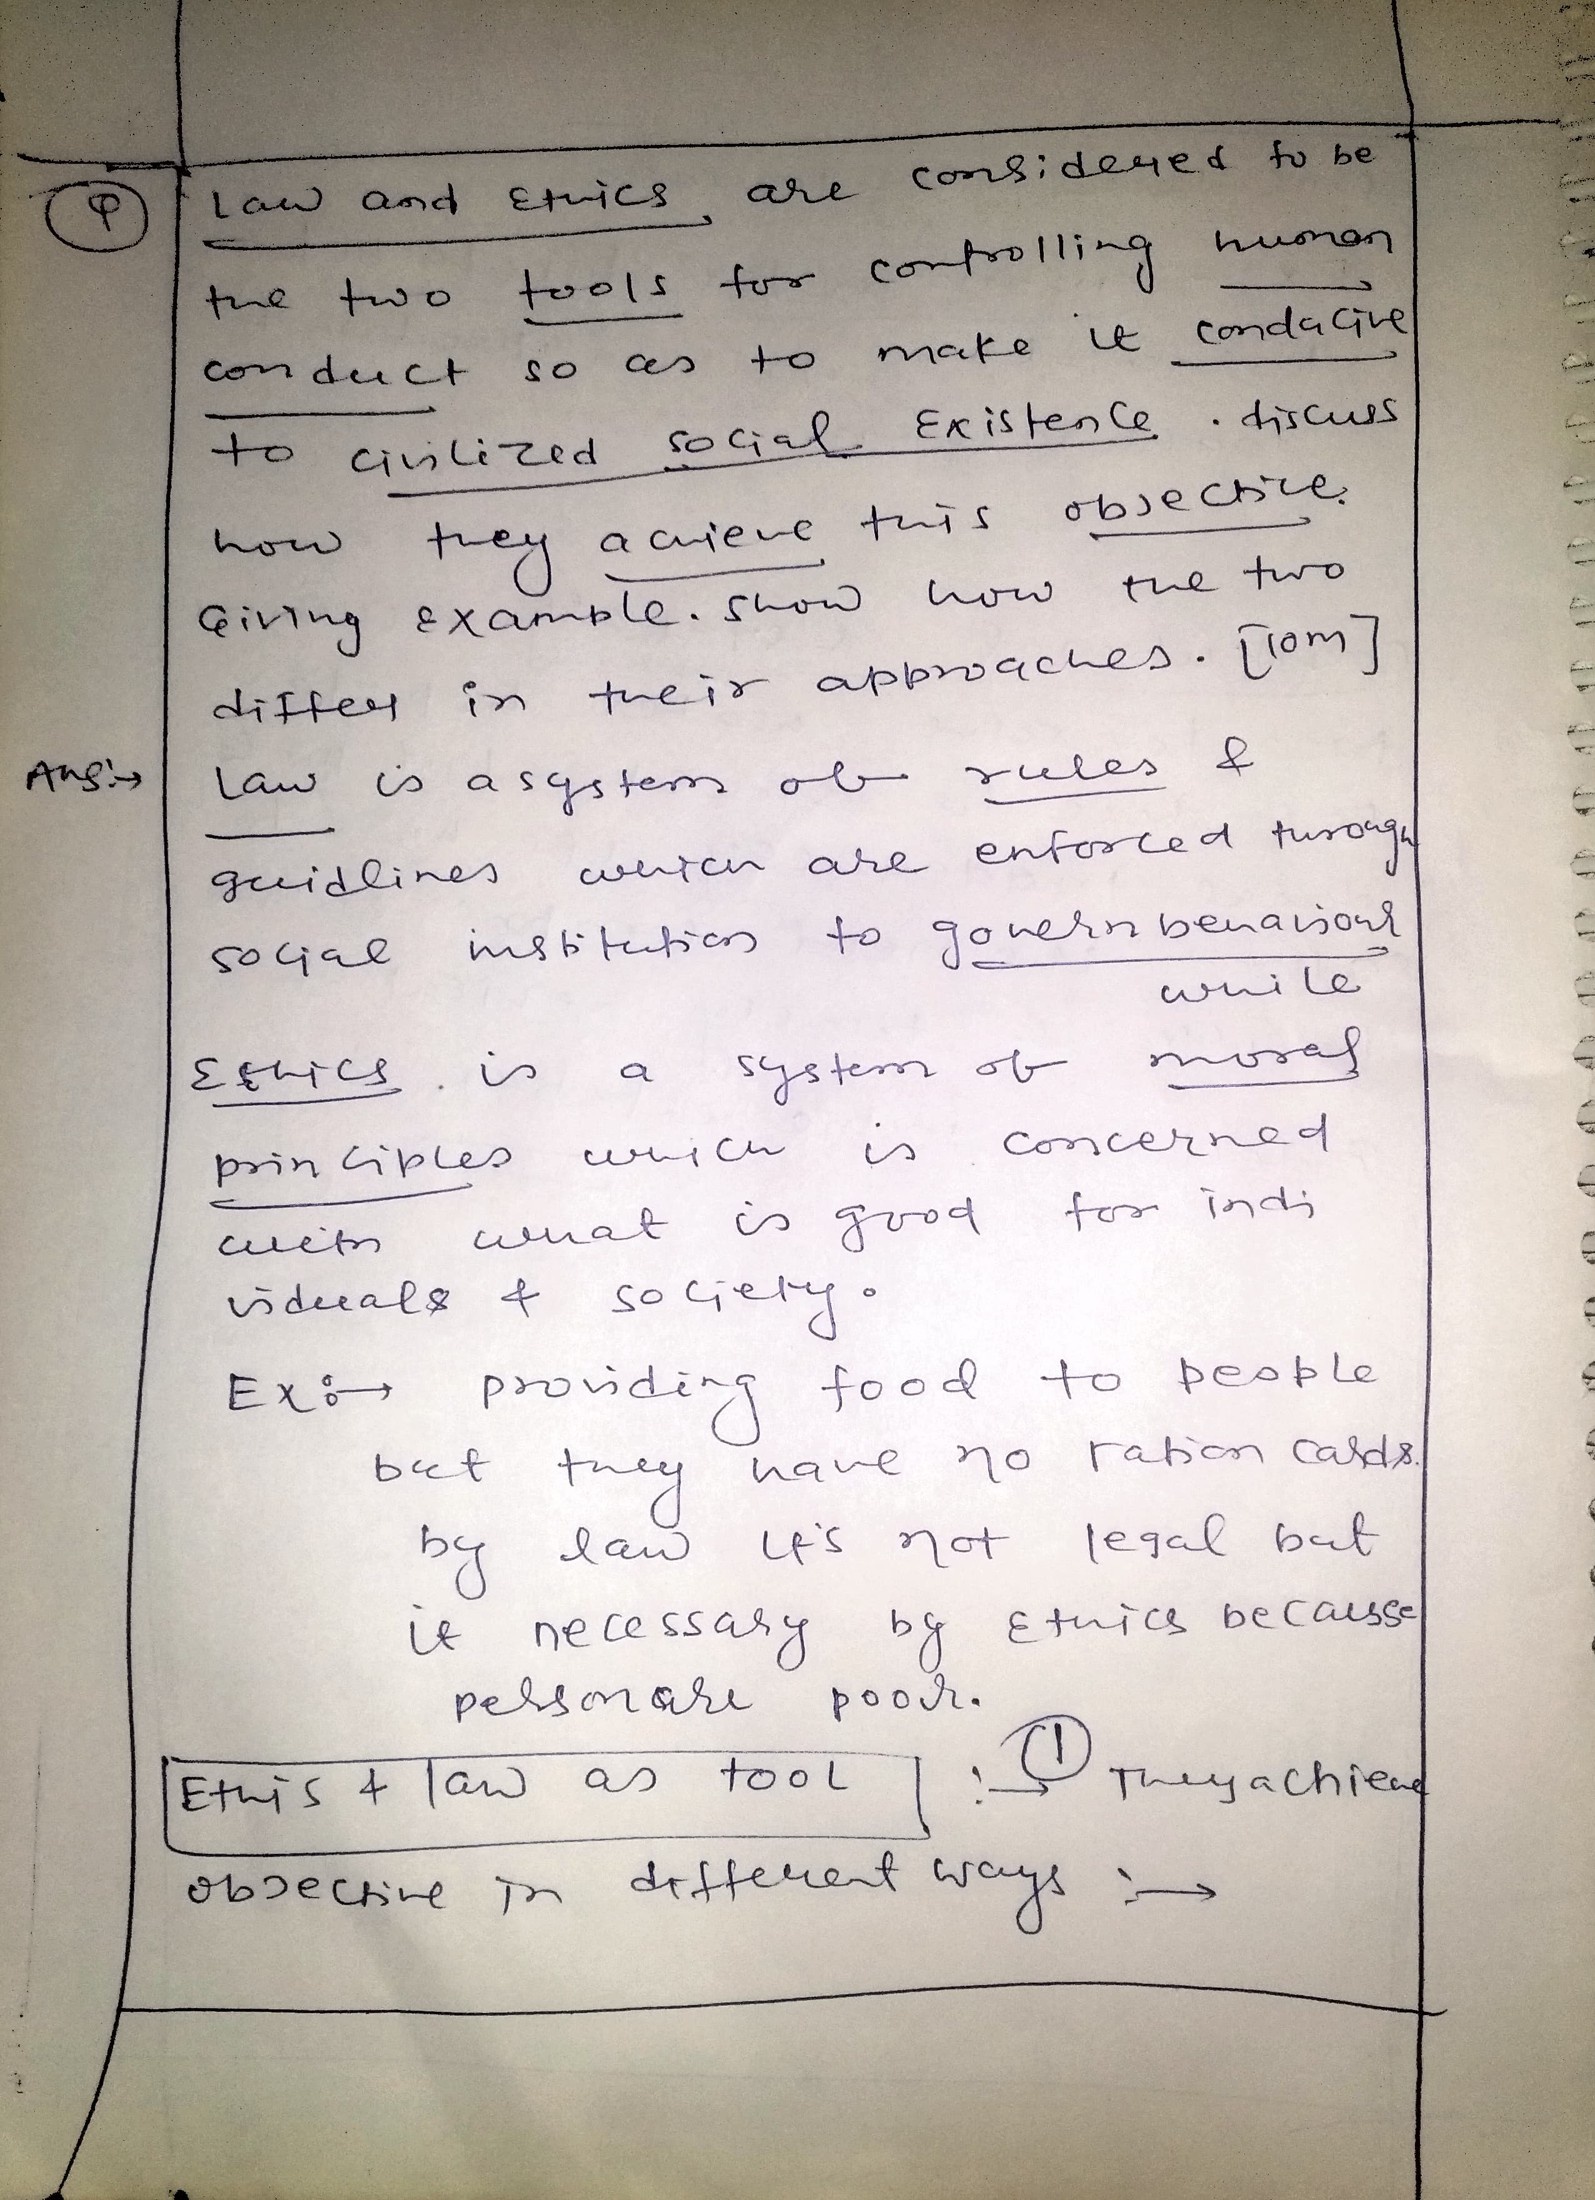 Q Law and Ethics are considered to be
the two tools for controlling human
conduct so as to make it condacive
to civilized social Existence. discuss
how they achieve this objective.
Giving Example. Show how the two
differ in their approaches. [10m]
Ans:→ Law is a system of rules &
guidlines which are enforced through
social institution to govern behaviour
while
Ethics is a system of moral
principles which is concerned
with what is good for indi
viduals & society.
Ex:→ providing food to people
but they have no ration cards.
by law it's not legal but
it necessary by Ethics becausse
person are poor.
Ethis & law as tool :→ ① They achieve
objective in different ways :→